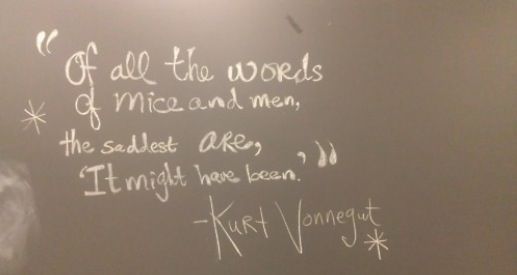 "Of all the words
of mice and men,
* the saddest ARE,
'It might have been.'"
-Kurt Vonnegut *